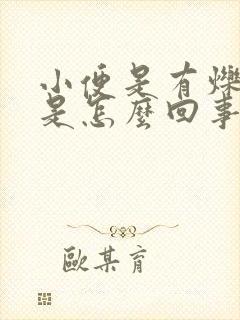 小便是有爍
是怎麼回事
歐某育